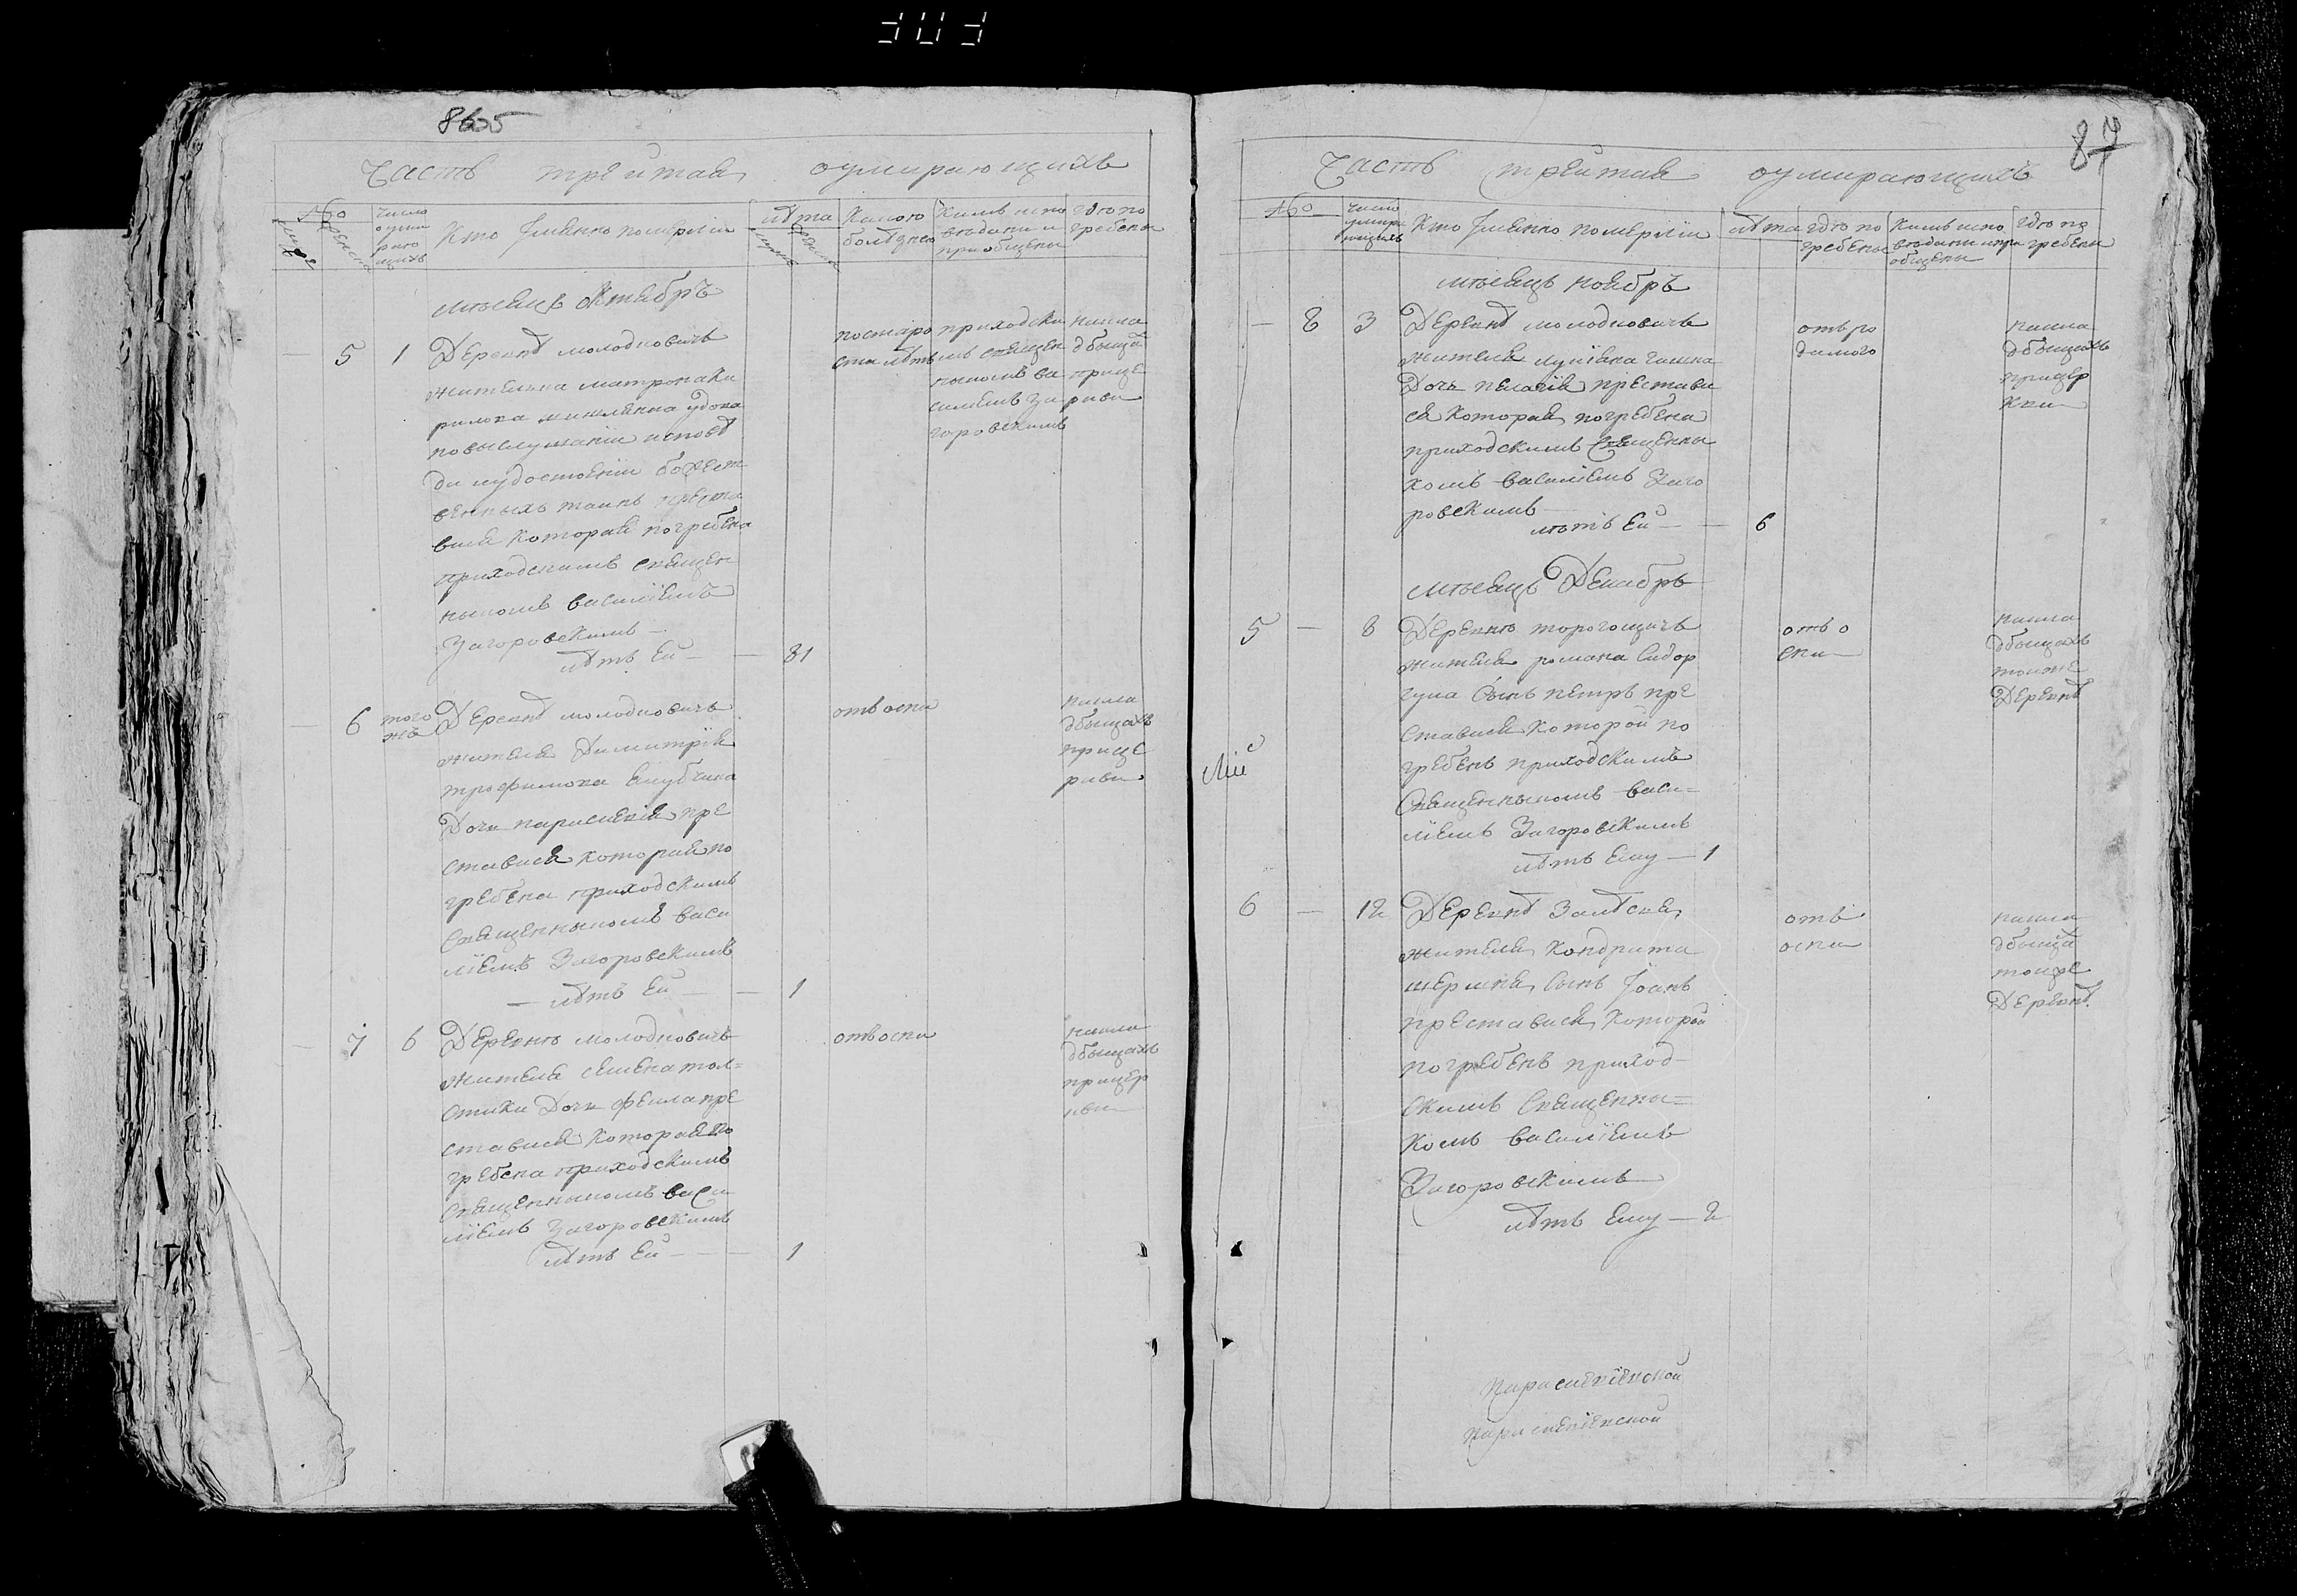 303
8605
Часть третая оумирающихъ
№о
число оуми рающихъ
Кто Іменно померліи
лѣта
Какою болѣзнею
Кимъ испо вѣдани и приобщены
гдѣ по гребены
мѣсяцъ октябрь
5 1 Деревнѣ молодковичъ
жителька матрона
удова
по выслушаніи исповѣ
ди иудостоеніи божест
венныхъ таинъ преста
вися которая погребена
приходскимъ священ
никомъ василіемъ
Загоровскимъ
лѣтъ Ей 81
постаро
сти лѣтъ
приходски
мъ священ
никомъ ва
силіемъ За
горовскимъ
накла
дбыща
прице
ркви
6 того же Деревнѣ молодковичъ
жителя Димитрія
трофимова
Дочь параскевія пре
ставися которая по
гребена приходскимъ
Священникомъ васи
ліемъ Загоровскимъ
лѣтъ Ей 1
отвоспи
накла
дбыщахъ
прице
ркви
7 6 Деревнѣ молодковичъ
жителя семена тол=
стики Дочь фекла пре
ставися которая по
гребена приходскимъ
Священникомъ васи
ліемъ Загоровскимъ
лѣтъ Ей 1
отвоспи
накла
дбыщахъ
прицер
кви
87
Часть третая оумирающихъ
№о
число умира ющихъ
Кто Іменно померліи
лѣта
гдѣ по гребены
Кимъ испо вѣдани ипри общены
гдѣ по гребени
мѣсяцъ ноябрь
8 3 Деревнѣ молодковичъ
жителя
Дочь пелагія престави
ся которая погребена
приходскимъ Священни
комъ василіемъ Заго
ровскимъ
лѣтъ Ей 6
отвро
димого
накла
дбыщахъ
прицер
кви
мѣсяцъ Декабрь
5 8 Деревнѣ торогощичъ
жителя романа Сидор
чука Сынъ петръ пре
ставися которой по
гребенъ приходскимъ
Священникомъ васи=
ліемъ Загоровскимъ
лѣтъ Ему 1
отво
спи
накла
дбыщахъ
тоиже
Деревнѣ
6 12 Деревнѣ Залѣска
жителя кондрата
Сынъ Іоанъ
преставися которой
погребенъ приход=
скимъ Священни=
комъ василіемъ
Загоровскимъ
лѣтъ Ему 2
отъ
оспи
накла
дбыща
тоиже
Деревнѣ
параскевіевской
параскевіевской